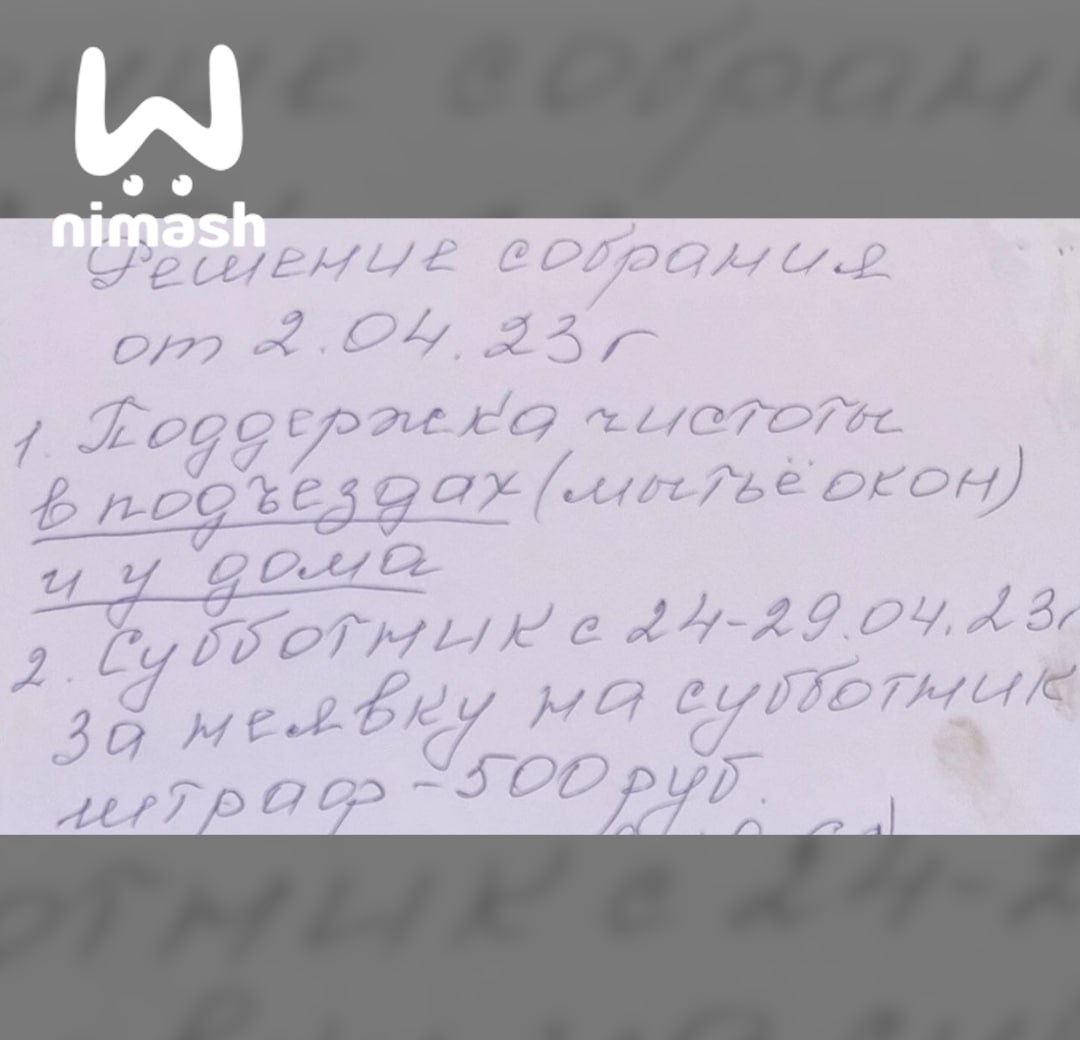 nimash
Решение собрания
от 2.04.23г
1. Поддержка чистоты
в подъездах (мытьё окон)
и у дома
2. Субботник с 24-29.04.23г
За неявку на субботник
штраф - 500 руб.